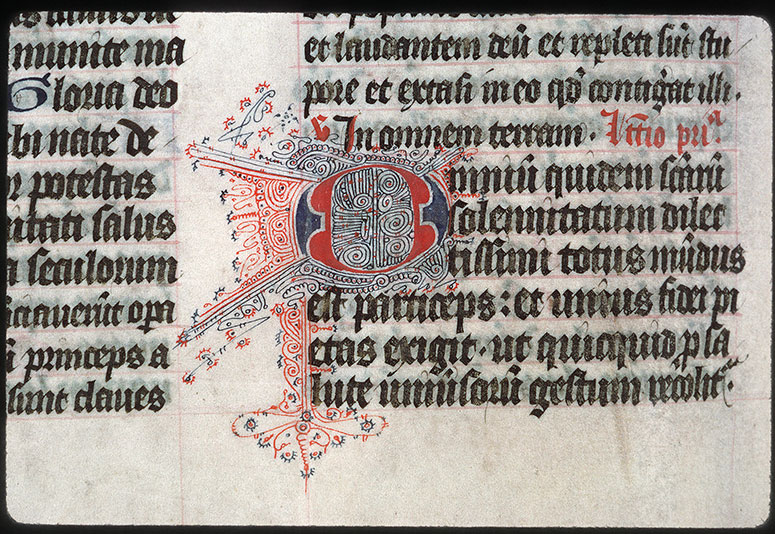 munite ma
Gloria deo
bi nate de
potestas
itati salus
seculorum
ciauerūt opa
princeps a
sunt claues
et laudantem deū et repleti sūt stu
pore et extasi in eo qđ contigerat illi.
In omnem terram. lc̄tio pria
Omniū quidem scōrū
solennitatum dilec
tissimi totus mūdus
est particeps: et unius fidei pi
etas exigit. ut quicquid p sa
lute uniūsorū gestum recolit᷑.